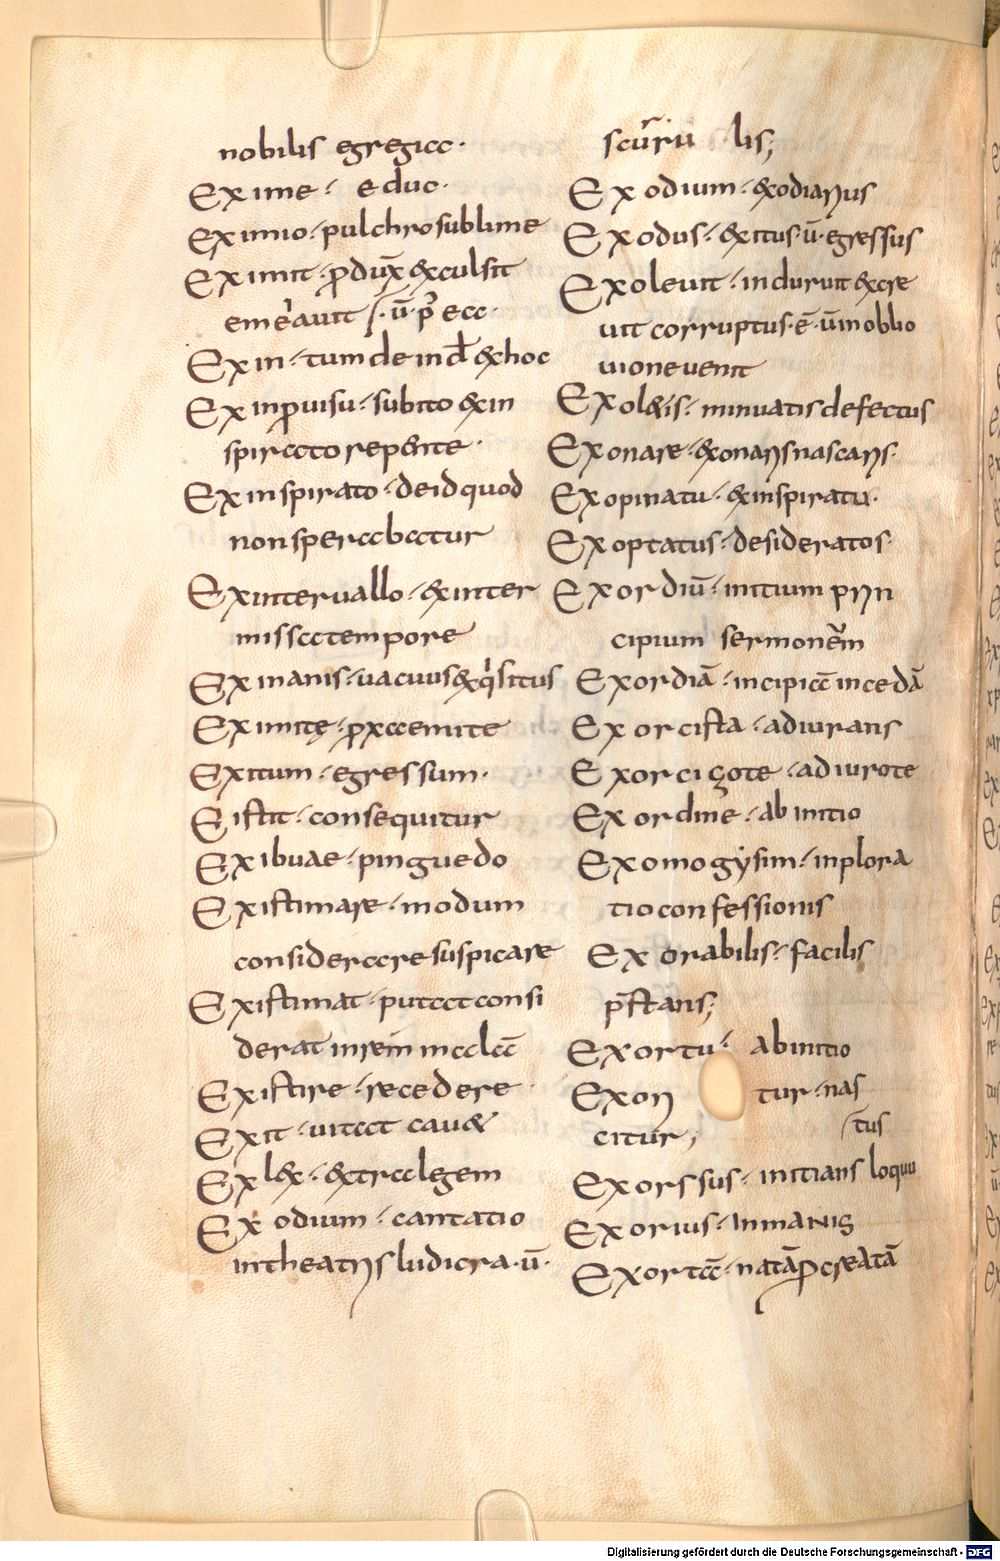 nobilis egregia·
Exime· educ·
Eximio· pulchro sublime
Eximit· ꝓdux̄ &culsit
emerauit s·ū· p̄ ea·
Exin· tum deind̄ &hoc
Exinꝓuisu· subito &in
spirato repente·
Exinspirato· deidquod
non sperabatur
Exinteruallo· &inter
missa tempore
Exinanis· uacuus &q̍situs
Eximitę· ꝓxaemite
Exitum· egressum·
Eistit· consequitur
Exibuae· pinguedo
Existimare· modum
considerare suspicare
Existimat· putat consi
derat inrem in alā
Existire· recedere
Exit· uitat cau&
Exl&· &tra legem
Exodium· cantatio
intheatris ludicra·ū·
scurru lis;
Exodium· &odiarius
Exodus· &itus·ū· egressus
Exoleuit· induruit &cre
uit corruptus·ē· ūinoblio
uione uenit
Exol&is· minuatis defectus
Exonare· &onaris nascaris·
Exopinatu· &inspiratu·
Exoptatus· desideratos·
Exordiū· initium prin
cipium sermonem
Exordiā· incipiā incedā
Exorcista· adiurans
Exorcizote· adiurote
Exordine· ab initio
Exomogysim· inplora
tio confessionis
Exorabilis· facilis
p̄stans;
Exortu· ab initio
Exori tur· nas
citur; tus
Exorssus· initians loquu
Exorius· inmanis
Exortā· natā ꝓcreatā
Digitalisierung gefördert durch die Deutsche Forschungsgemeinschaft - DFG